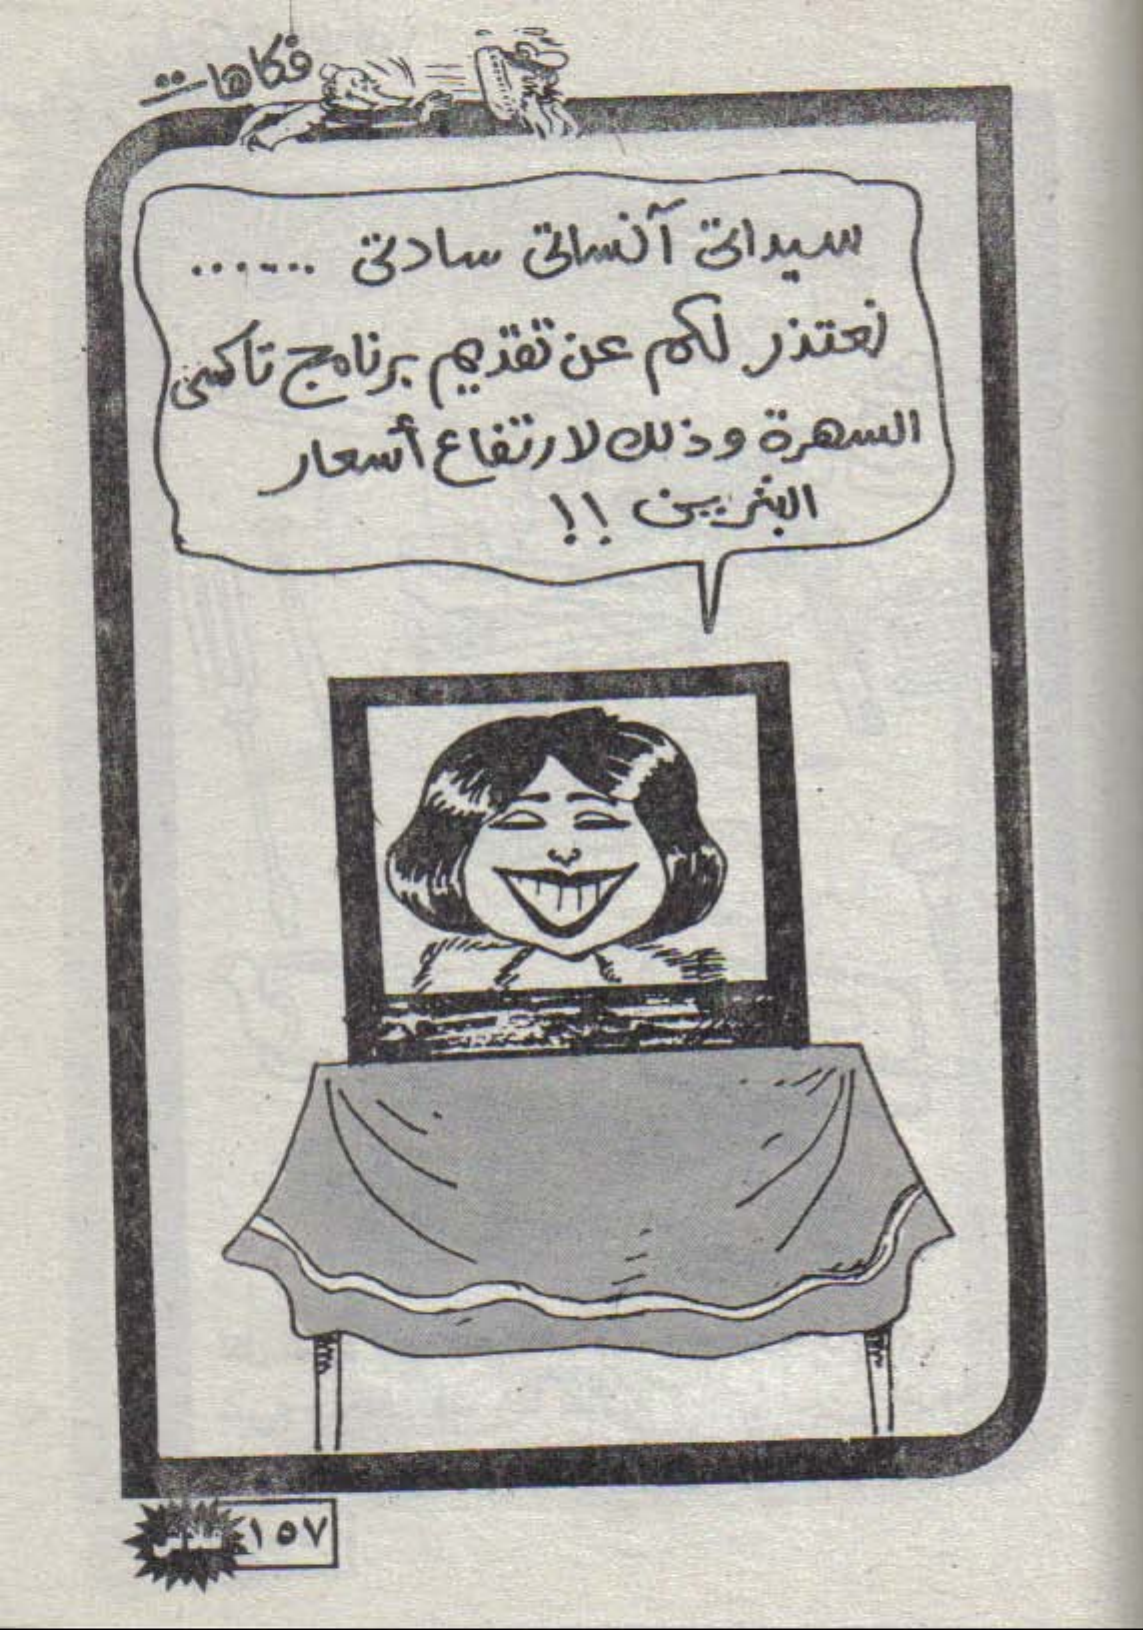 فكاهات
سيداتي آنساتي سادتي ......
نعتذر لكم عن تقديم برنامج تاكسي
السهرة وذلك لارتفاع أسعار
البنزين !!
١٥٧
فلاش